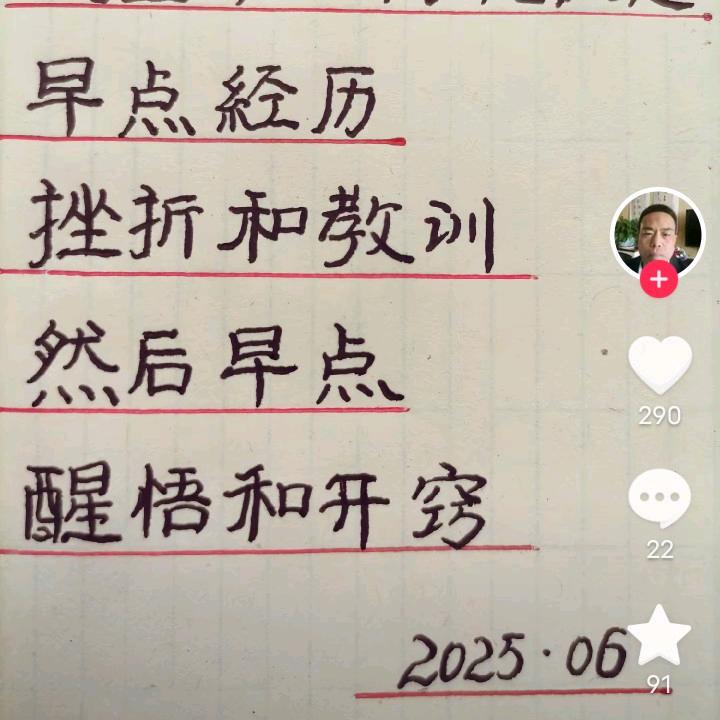 早点經历
挫折和教训
然后早点
醒悟和开窍
2025·06
290
22
91